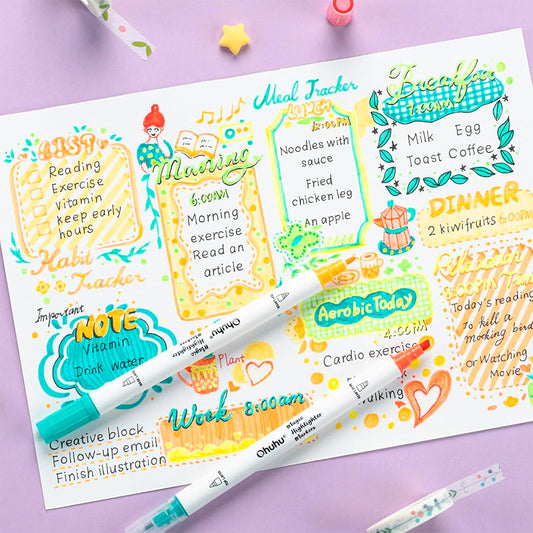 LIST
Reading
Exercise
Vitamin
keep early
hours
Habit
Tracker
Morning
6:00AM
Morning
exercise
Read an
article
Meal Tracker
LUNCH
12:00PM
Noodles with
sauce
Fried
chicken leg
An apple
Breakfast
7:00AM
Milk Egg
Toast Coffee
DINNER
2 kiwifruits 6:00PM
Relaxation
Time
Today's reading
To kill a
mocking bird
or Watching
Movie
Important
NOTE
Vitamin
Drink water
Plant
Aerobic Today
4:00PM
Cardio exercise
Walking
Work 8:00am
Creative block
Follow-up email
Finish illustration
Ohuhu
Magic
Highlighter
Markers
Ohuhu
Magic
Highlighter
Markers